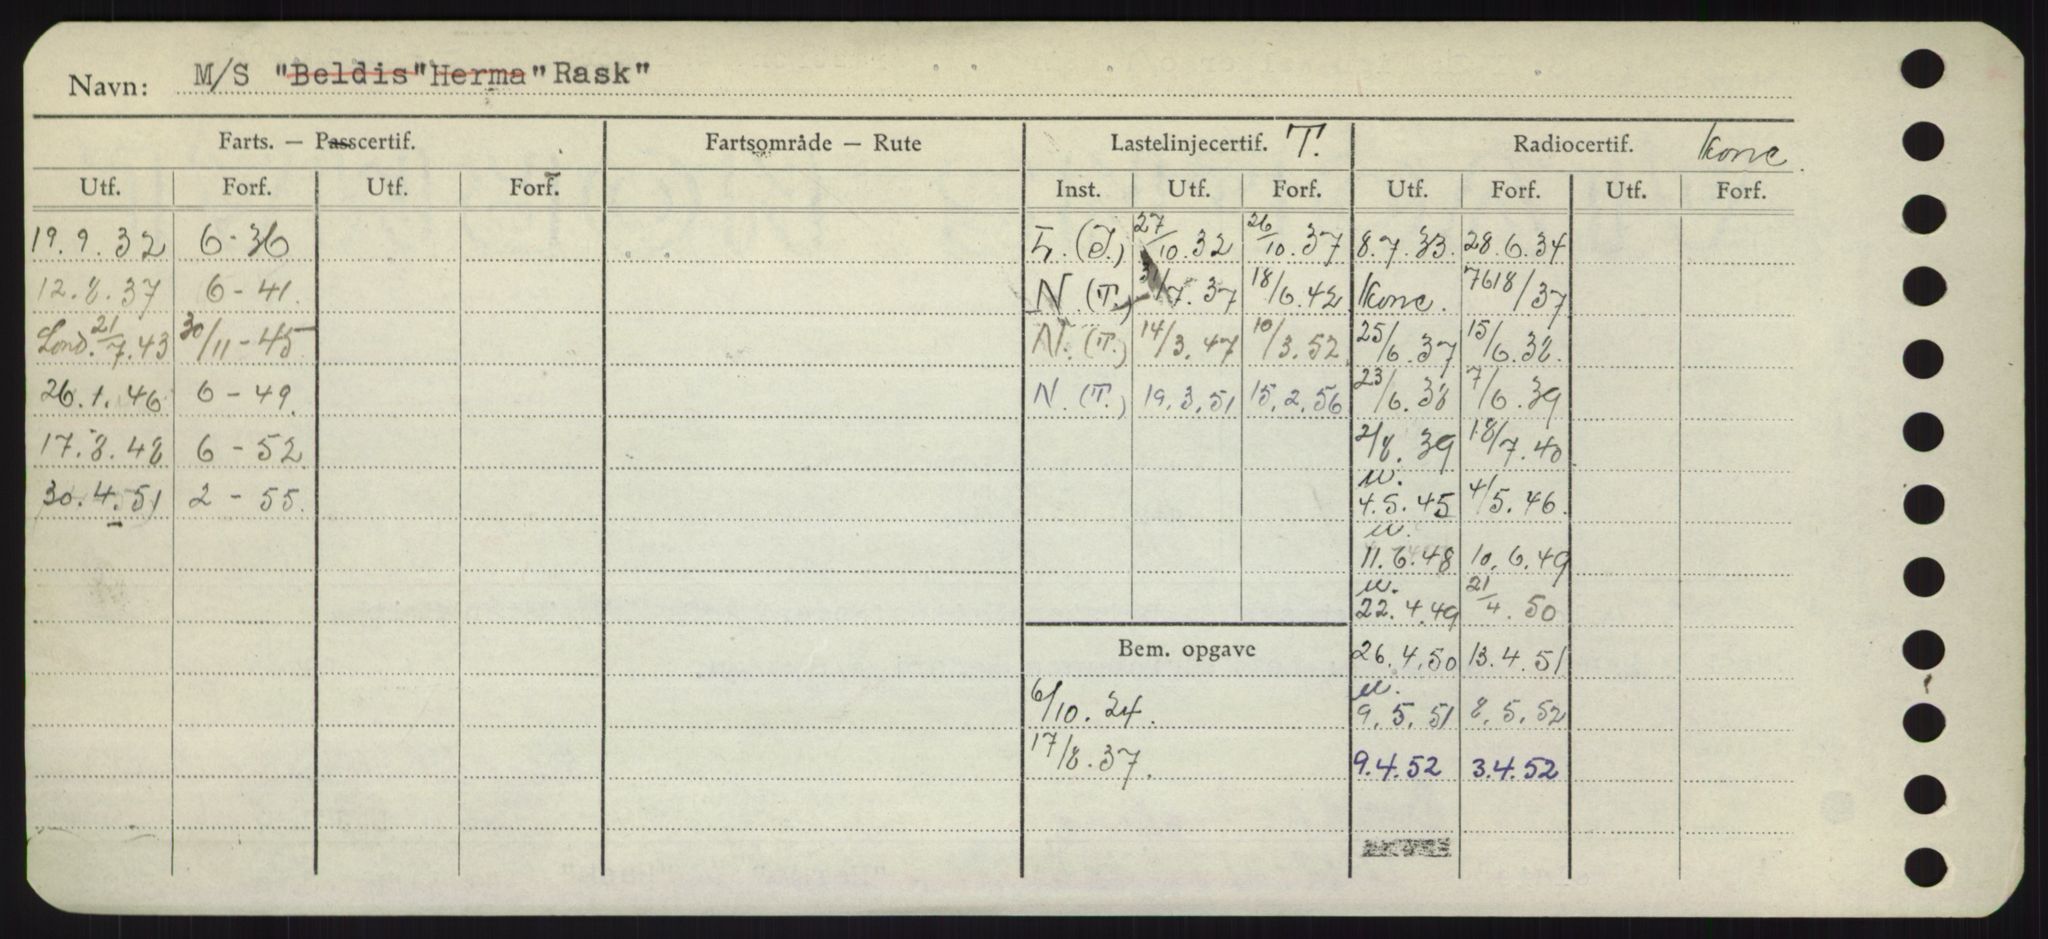 Navn: M/S "Beldis" "Herma" "Rask"
Farts. — Passcertif. Fartsområde — Rute Lastelinjecertif. T. Radiocertif. Konc.
Utf. Forf. Utf. Forf. Inst. Utf. Forf. Utf. Forf. Utf. Forf.
19.9.32 6-36 L. (T.) 27/10.32 26/10.37 8.7.33. 28.6.34
12.8.37 6-41. N. (T.) 31/7.37 18/6.42 Konc. 7618/37
Lond. 21/7.43 30/11-45 N. (T.) 14/3.47 10/3.52 25/6.37 15/6.38.
26.1.46 6-49. N. (T.) 19.3.51 15.2.56 23/6.38 7/6.39
17.8.48 6-52 2/8.39 18/7.40
u.
30.4.51 2-55. 4.5.45 4/5.46.
u.
11.6.48 10.6.49
u.
22.4.49 21/4.50
Bem. opgave 26.4.50 13.4.51
u.
6/10.24. 9.5.51 8.5.52
17/8.37. 9.4.52 3.4.52